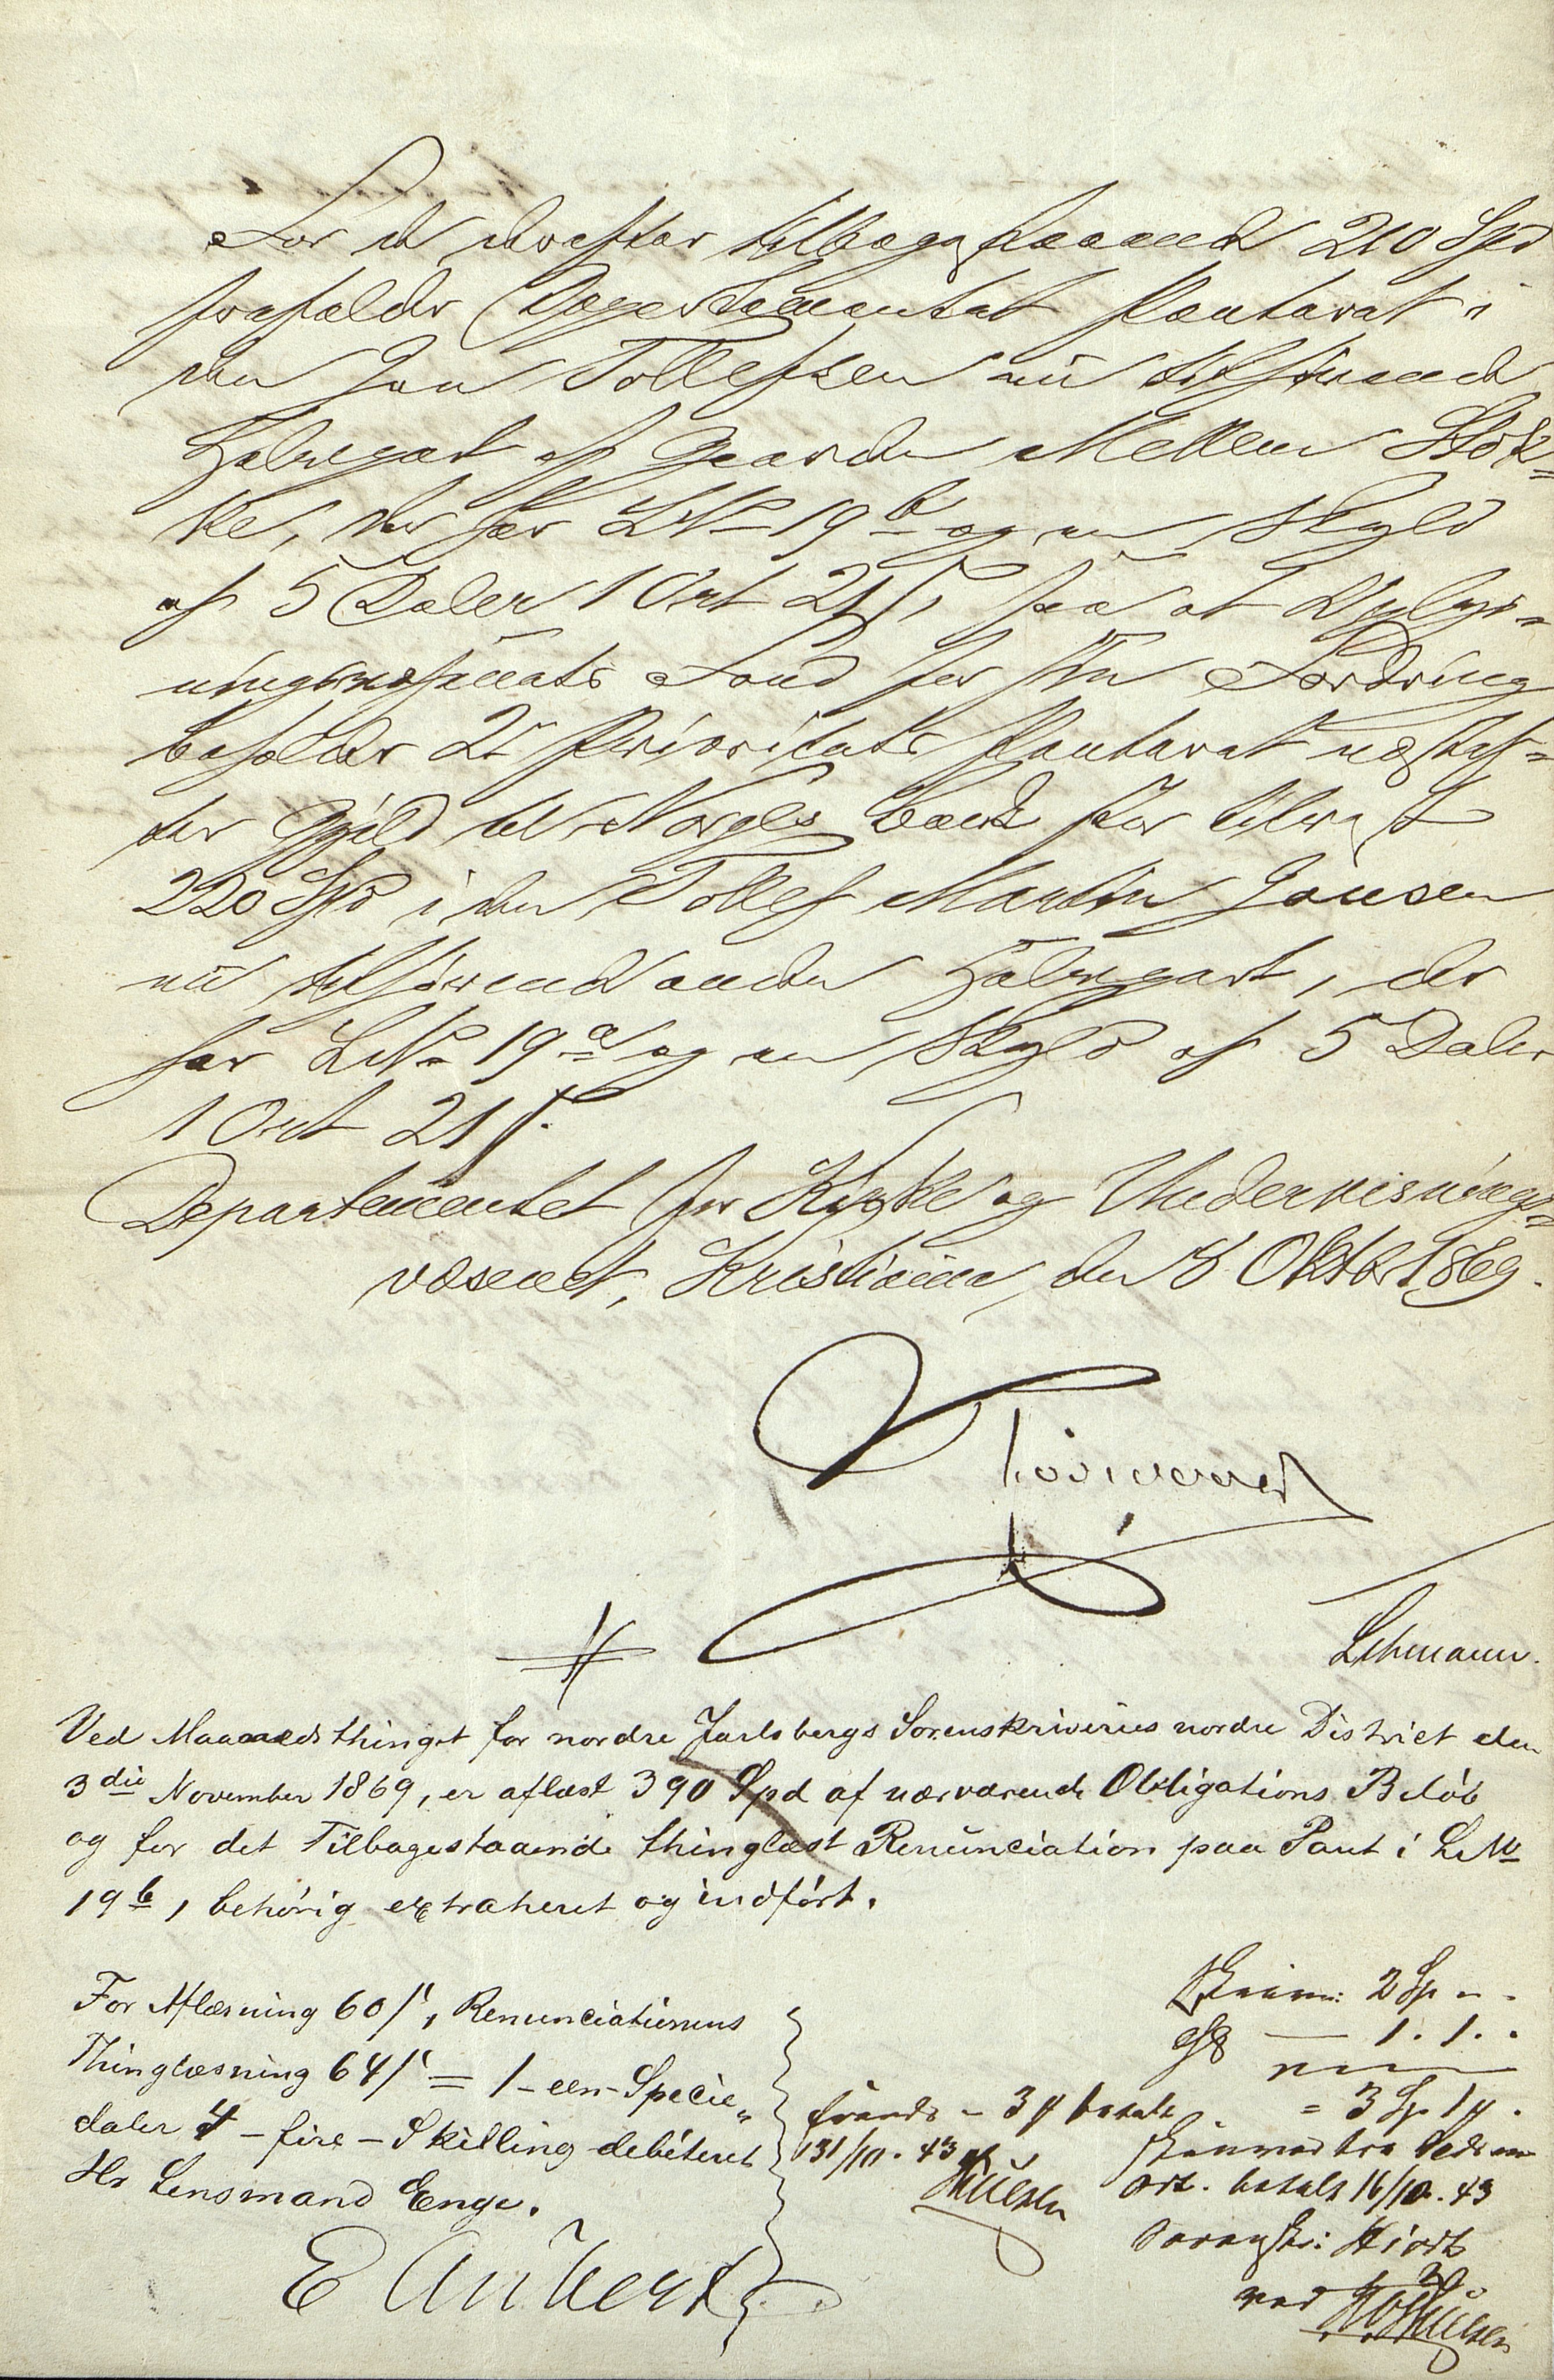 For de derefter tilbagestaaende 210 Spd
frafalder Departementet Panteret i
den Jon Tollefsen nu tilhørende
Halvpart af Gaarden Mellem Stok=
ke, der har LNo 19b og en Skyld
af 5 Daler 1 Ort 21 ſ, saa at Oplys=
ningsvæsenets Fond for sin Fordring
beholder 2den Prioritets Panteret næstef=
ter Gjæld til Norges Bank stor tilrest
220 Spd i den Tollef Martin Jonsen
nu tilhørende anden Halvpart, der
har LNo 19a og en Skyld af 5 Daler
1 Ort 21 ſ.
Departementet for Kirke og Undervisnings=
væsenet, Kristiania den 8 Oktbr 1869.
Lehmann.
Ved Maanedsthinget for nordre Jarlsbergs Sorenskriveries nordre District den
3die November 1869, er aflæst 390 Spd af nærværende Obligations Beløb
og for det Tilbagestaaende thinglæst Renunciation paa Pant i LNo
19b, behørig extraheret og indført.
For Aflæsning 60 ſ, Renunciationens
Thinglæsning 64 ſ = 1 – een – Specie„
daler 4 – fire – Skilling debiteret
Hr Lensmand Enge.
E Ankers
2 Sp
1. 1. .
= 3 Sp 1
betalt
131/10. 43
Ort. betalt 16/10. 43
Sorenskr: Hiorth
ved